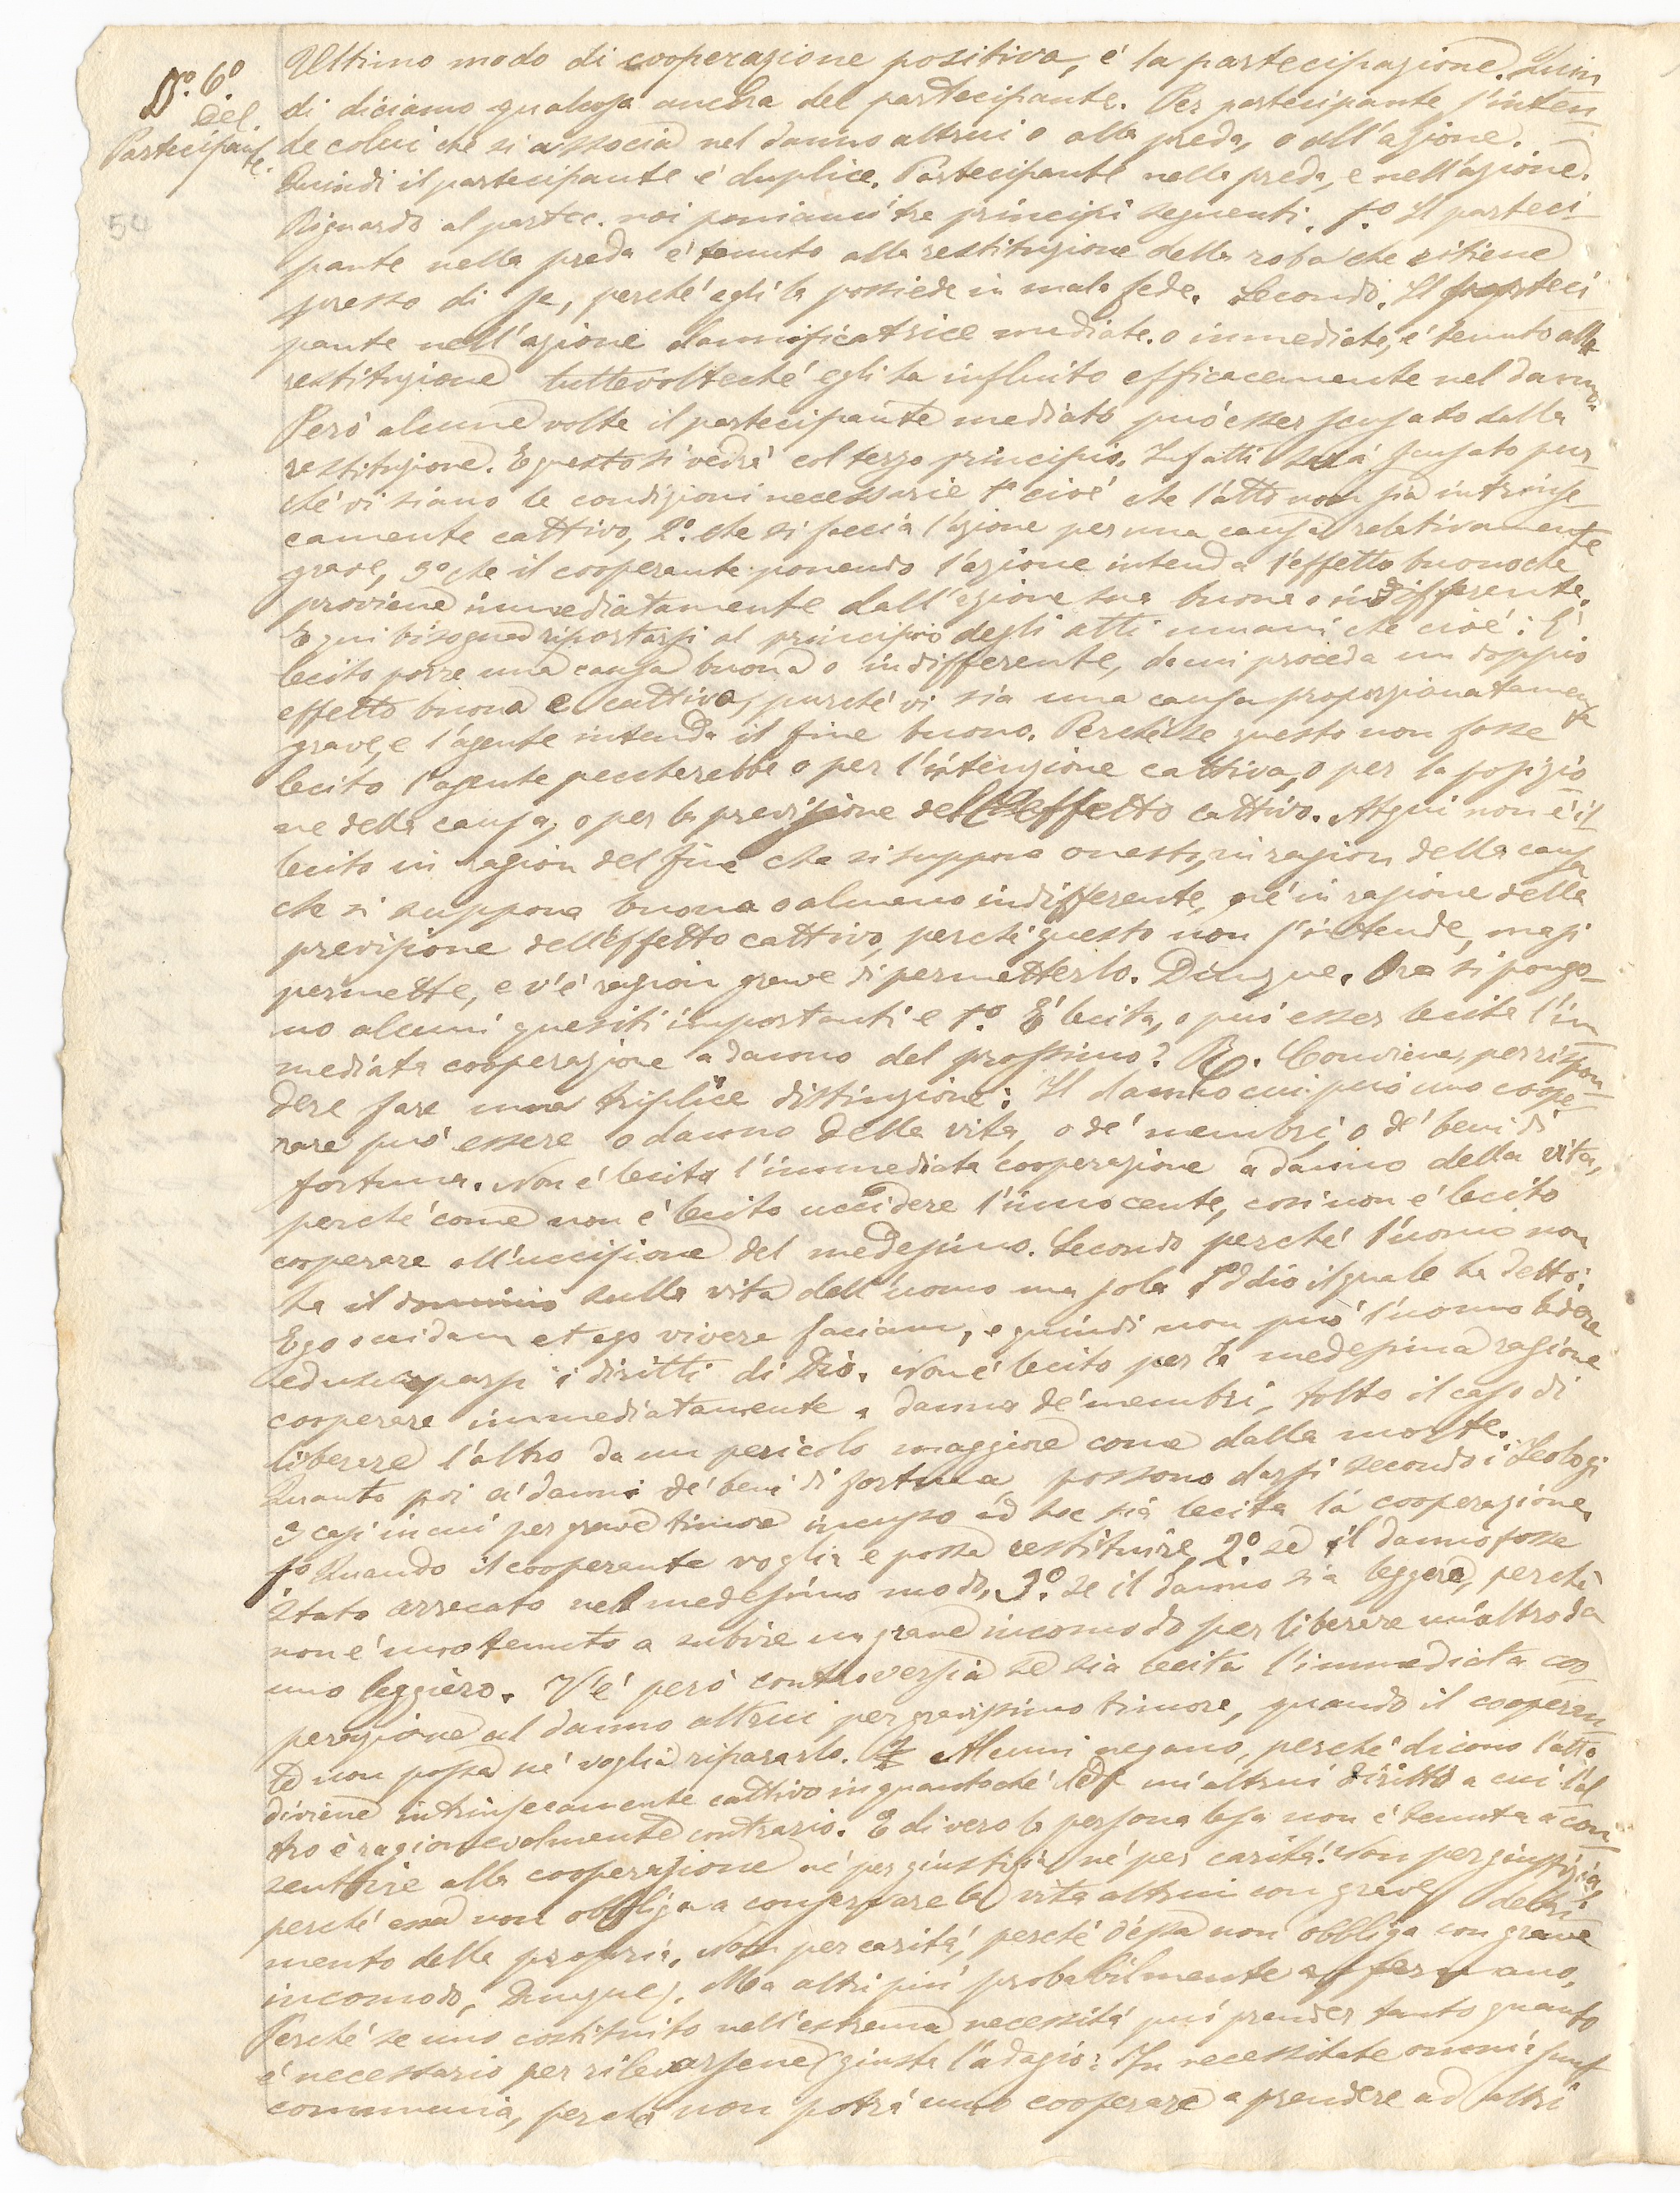 N.º 6º
Del
Partecipante.
50
Ultimo modo di cooperazione positiva, é la partecipazione. Quin
di diciamo qualcosa anche del partecipante. Per partecipante s'inten
de colui che si associa nel danno altrui o alla preda, o all'azione.
Quindi il partecipante é duplice. Partecipante nella preda, e nell'azione.
Riguardo al partec. noi poniamo tre principi seguenti. 1.º Il parteci
pante nella preda é tenuto alla restituzione della roba che ritiene
presso di se, perché egli la possiede in mala fede. Secondo. Il parteci
pante nell'azione dannificatrice mediate o immediate, é tenuto alla
restituzione tuttevolteché egli ha influito efficacemente nel danno.
Peró alcune volte il partecipante mediato puó esser scusato dalla
restituzione. E questo si vedrá col terzo principio. Infatti sará scusato pur
ché vi siano le condizioni necessarie 1ª cioé che l'atto non sia intrinse
camente cattivo, 2.º che si faccia l'azione per una causa relativamente
grave, 3º che il cooperante ponendo l'azione intenda l'effetto buono che
proviene immediatamente dall'azione sua buona o indifferente.
E qui bisogna riportarsi al principio degli atti umani che cioé: É
lecito porre una causa buona o indifferente, da cui proceda un doppio
effetto buono e cattivo, purché vi sia una causa proporzionatamente
grave, e l'agente intenda il fine buono. Perché se questo non fosse
lecito l'agente peccherebbe o per l'intenzione cattiva, o per la posizio
ne della causa, o per la previsione dell'effetto cattivo. Atqui non é il
lecito in ragion del fine che si suppone onesto, in ragion della causa
che si suppone buona o almeno indifferente, né in ragione della
previsione dell'effetto cattivo, perché questo non s'intende, ma si
permette, e v'é ragion grave di permetterlo. Dunque. Ora si pongo
no alcuni quesiti importanti e 1.º É lecita, o puó esser lecita l'im
mediata cooperazione a danno del prossimo? R. Conviene, per rispon
dere fare una triplice distinzione: Il danno cui puó uno coope
rare puó essere o danno della vita, o de' membri, o de' beni di
fortuna. Non é lecita l'immediata cooperazione a danno della vita,
perché come non é lecito uccidere l'innocente, cosí non é lecito
cooperare all'uccisione del medesimo. Secondo perché l'uomo non
ha il dominio sulla vita dell'uomo ma solo Iddio il quale ha detto:
Ego occidam et ego vivere faciam, e quindi non puó l'uomo ledere
ed usurparsi i diritti di Dio. Non é lecito per la medesima ragione
cooperare immediatamente a danno de' membri, tolto il caso di
liberare l'altro da un pericolo maggiore come dalla morte.
Quanto poi ai danni de' beni di fortuna possono darsi secondo i Teologi
3 casi in cui per grave timore incusso ad hoc sia lecita la cooperazione.
1º Quando il cooperante voglia e possa restituire, 2.º se il danno fosse
stato arrecato nel medesimo modo, 3.º se il danno sia leggero, perché
non é uno tenuto a subire un grave incomodo per liberare un altro da
uno leggiero. V'é peró controversia se sia lecita l'immediata coo
perazione al danno altrui per gravissimo timore, quando il cooperan
te non possa né voglia ripararlo. Alcuni negano, perché dicono l'atto
diviene intrinsecamente cattivo in quantoché lede un altrui diritto a cui l'al
tro é ragionevolmente contrario. E di vero la persona lesa non é tenuta a con
sentire alla cooperazione né per giustizia, né per caritá. Non per giustizia,
perché essa non obbliga a conservare la vita altrui con grave detri
mento della propria. Non per caritá, perché dessa non obbliga con grave
incomodo, Dunque. Ma altri piú probabilmente affermano,
Perché se uno costituito nell'estrema necessitá puó prender tanto quanto
é necessario per rilevarsene giusta l'adagio: In necessitate omnia sunt
communia, perché non potrá uno cooperare a prendere ad altri